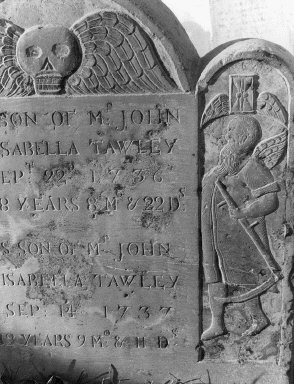 SON OF Mr JOHN
ISABELLA TAWLEY
SEPt 22d 1736
8 YEARS 8 Mo & 22 Ds
SON OF Mr JOHN
ISABELLA TAWLEY
SEP: 14 1737
YEARS 9 Mo & 11 Ds